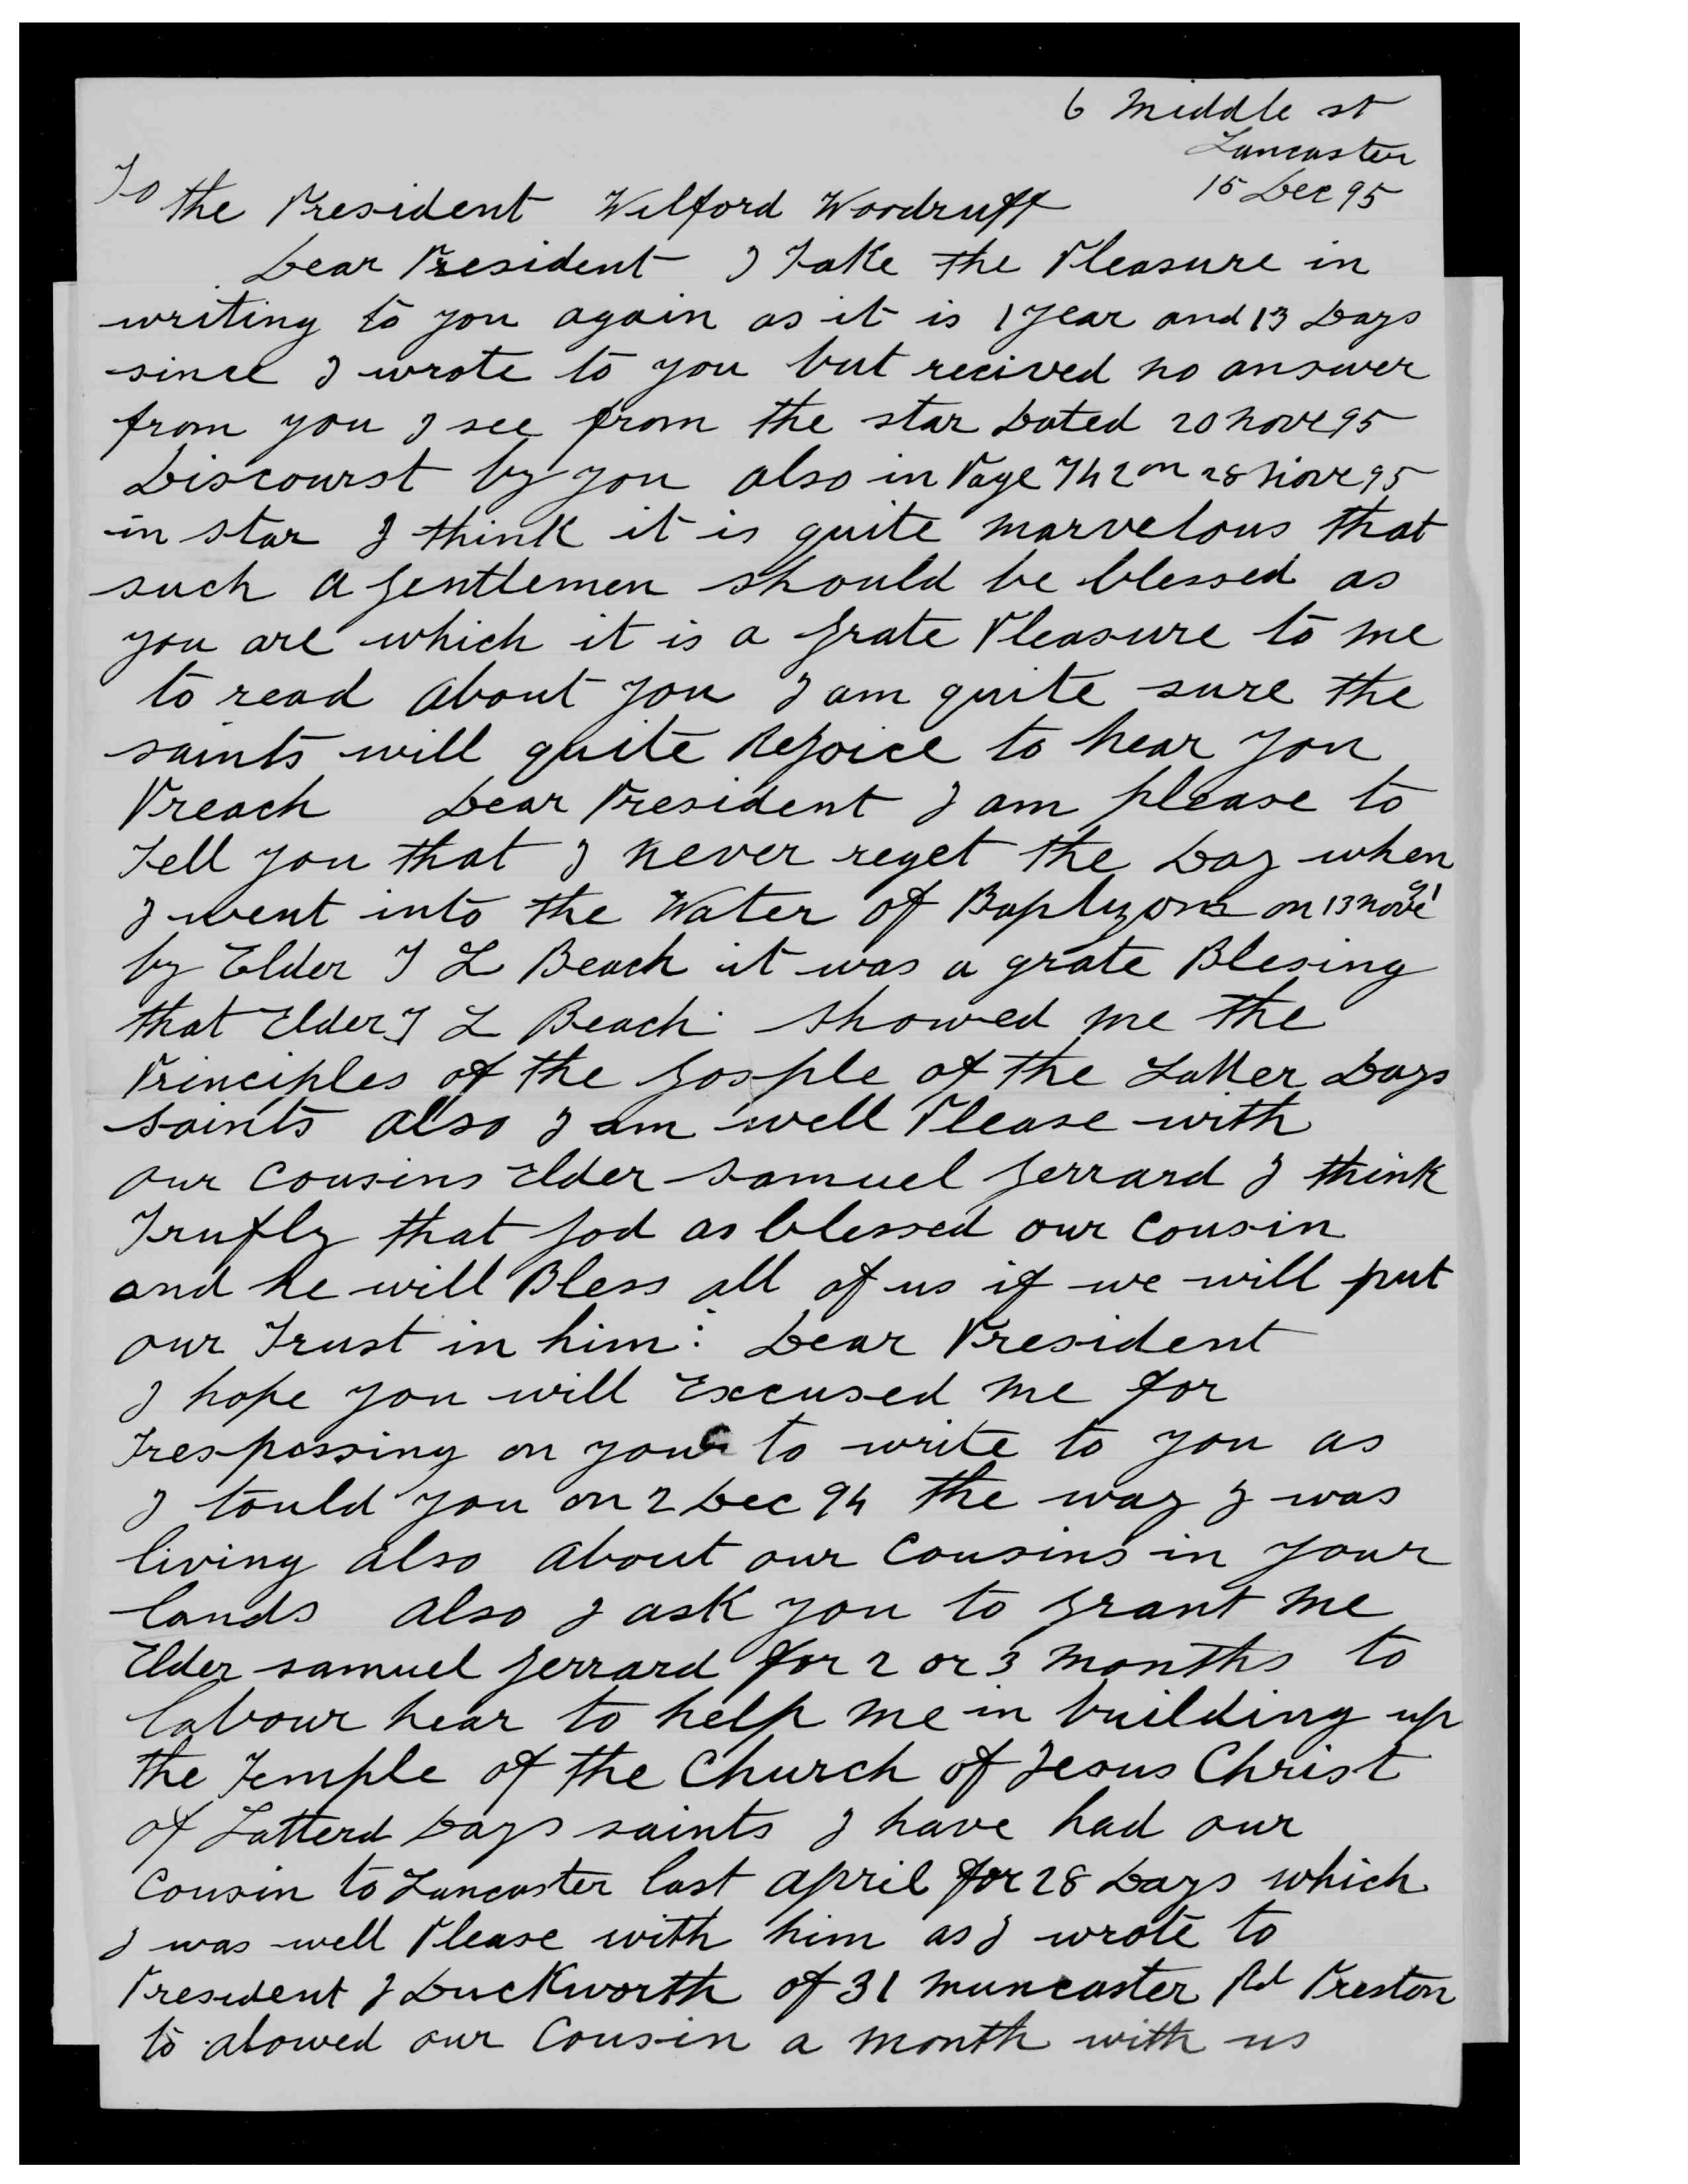 6 Middle st
Lancaster
15 Dec 95
To the President Wilford Woodruff
Dear President I Take the Pleasure in
writing to you again as it is 1 year and 13 Days
since I wrote to you but recived no answer
from you I see from the star Dated 20 Nove 95
Discourst by you also in Page 742 on 28 Nove 95
in star I think it is quite marvelous that
such a gentlemen should be blessed as
you are which it is a grate Pleasure to me
to read about you I am quite sure the
saints will quite Rejoice to hear you
Preach Dear President I am please to
Tell you that I never reget the Day when
I went into the Water of on 13 Nove 91
by Elder T L Beach it was a grate Blesing
that Elder T L Beach showed me the
Principles of the Gosple of the Latter Days
saints also I am well Please with
our Cousins Elder Samuel Gerrard I think
Trufly that God as blessed our Cousin
and he will Bless all of us if we will put
our Trust in him: Dear President
I hope you will Excused me for
Trespassing on your to write to you as
I tould you on 2 Dec 94 the way I was
living also about our Cousins in your
lands also I ask you to grant me
Elder Samuel Gerrard for 2 or 3 months to
labour hear to help me in building up
the Temple of the Church of Jesus Christ
of Latterd Days saints I have had our
Cousin to Lancaster last April for 28 Days which
I was well Please with him as I wrote to
President J Duckworth of 31 Muncaster Rd Preston
to alowed our Cousin a month with us